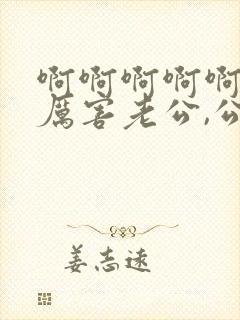 啊啊啊啊啊
厉害老公,公
姜志远